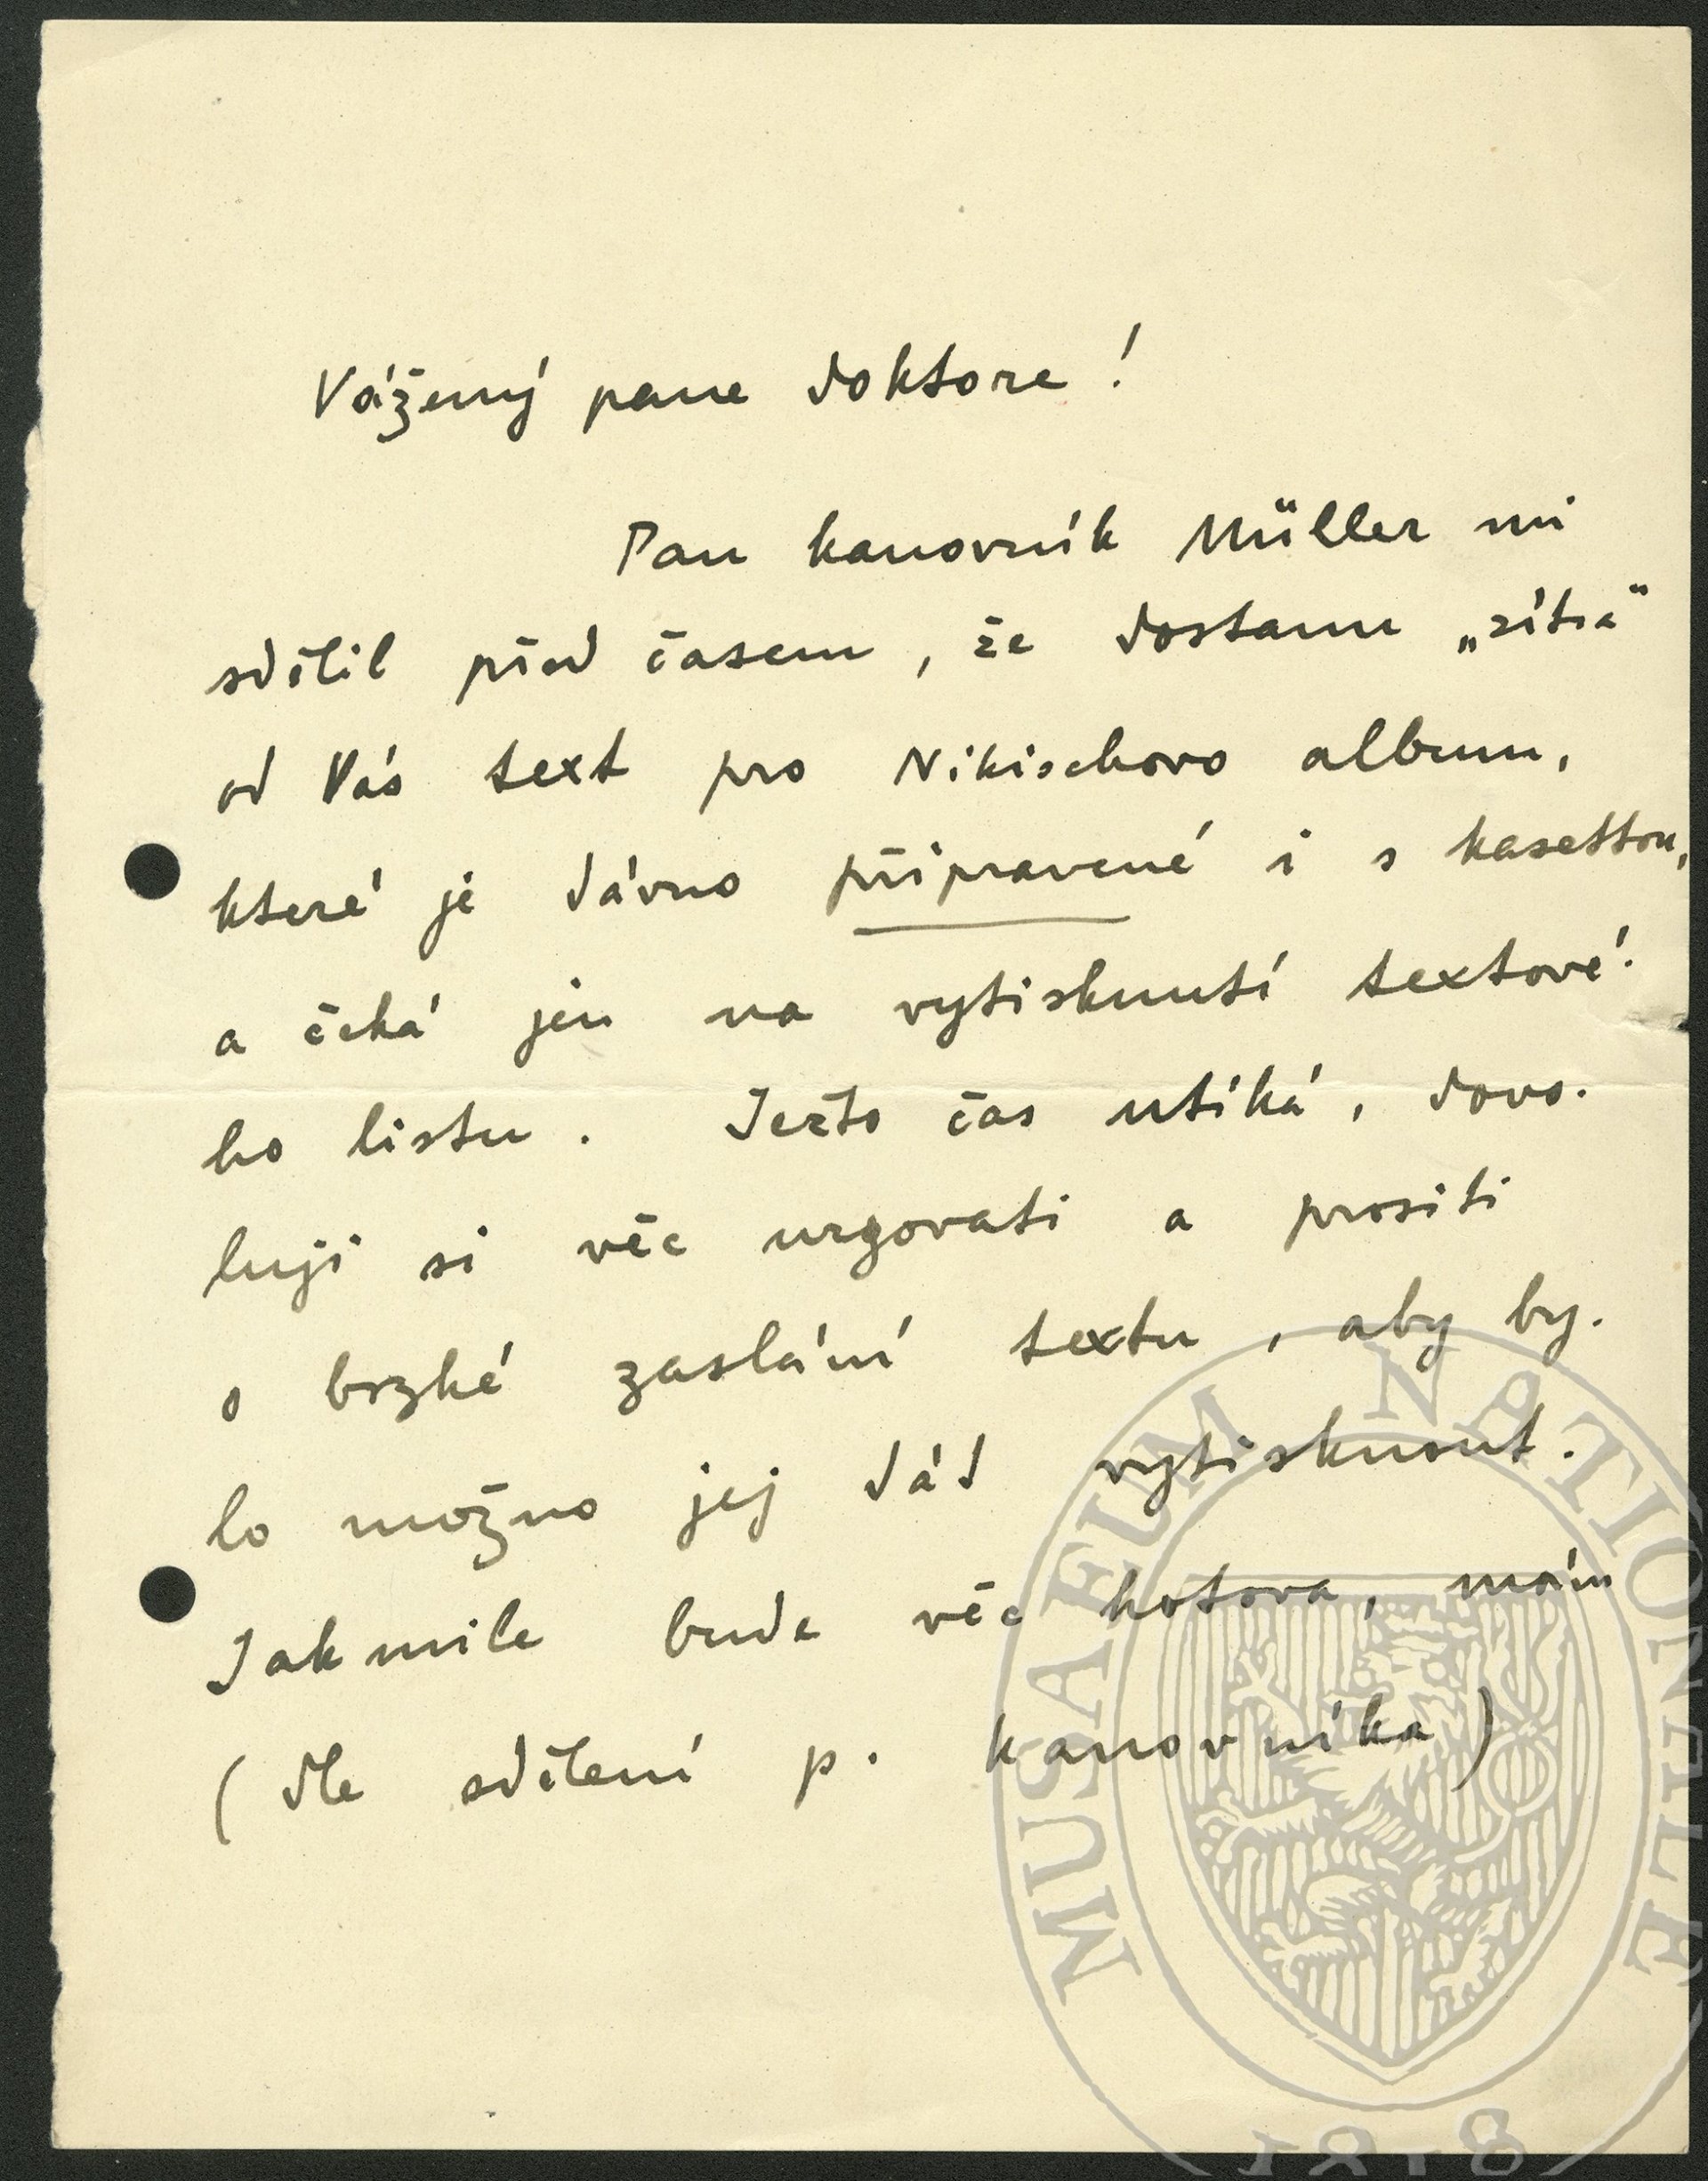 Vážený pane doktore!
Pan kanovník Müller mi
sdělil před časem, že dostanu „zítra“
od Vás text pro Nikischovo album,
které je dávno připravené i s kasettou,
a čeká jen na vytisknutí textové-
ho listu. Ježto čas utíká, dovo-
luji si věc urgovati a prositi
o brzké zaslání textu, aby by-
lo možno jej dád vytisknout.
Jakmile bude věc hotova, mám
(dle sdělení p. kanovníka)
MUSAEUM NATIONALE
1818